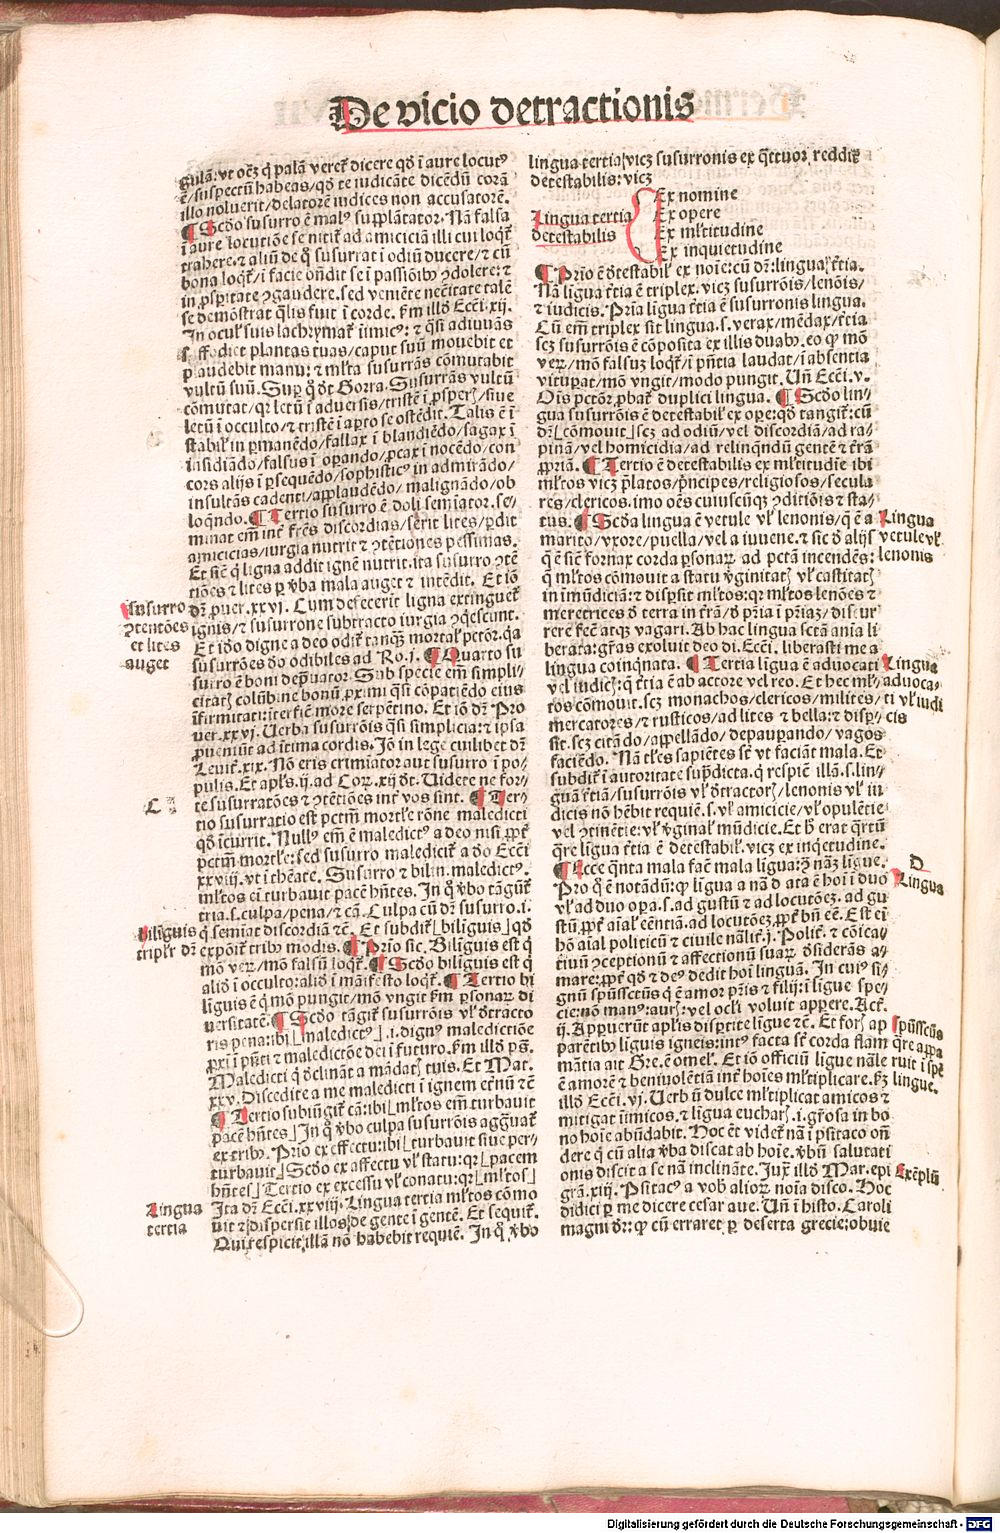 De vicio detractionis
gulā: vt oēꝫ q̄ palā vereꞇ̄ dicere qd̄ ī aure locutꝰ
ē/suspectū habeas/qd̄ te iudicāte dicēdū corā
illo noluerit/delatorē iudices non accusatorē.
¶ Scd̄o susurro ē malꝰ supplātator. Nā falsa
ī aure locutiōe se nitiꞇ̄ ad amiciciā illi cui loqꞇ̄
trahere. ⁊ aliū de q̄ susurrat ī odiū ducere/⁊ cū
bona loqꞇ̄/ī facie oñdit se ī passiōibꝰ ꝯdolere: ⁊
in ꝓsperitate ꝯgaudere. sed veniēte necītate talē
se demōstrat q̄lis fuit ī corde. ẜm illd̄ Ecc̄i. xij.
In ocul' suis lachrymaꞇ̄ īimicꝰ: ⁊ q̄si adiuuās
s ffodiet plantas tuas/caput suū mouebit et
plaudebit manu: ⁊ ml'ta susurrās cōmutabit
vultū suū. Suꝑ q̄ dt̄ Gorra. Susurrās vultū
cōmutat/qꝛ letū ī aduersis/tristē ī ꝓsperꝭ/siue
letū ī occulto/⁊ tristē ī aꝑto se ostēdit. Talis ē ī
stabil' in ꝑmanēdo/fallax ī blandiēdo/sagax ī
īnsidiādo/falsus ī opando/ꝓcax ī nocēdo/con
cors alijs ī ꝑsequēdo/sophisticꝰ in admirādo/
insultās cadenti/applaudēdo/malignādo/ob
loq̄ndo. ¶ Tertio susurro ē doli semiator. se-
minat em̄ inꞇ̄ frēs discordias/serit lites/ꝑdit
amicicias/iurgia nutrit ⁊ ꝯtētiones pessimas.
Et sic̄ q̄ ligna addit ignē nutrit. ita susurro ꝯtē
tiōes ⁊ lites ꝑ v̄ba mala auget ⁊ intēdit. Et iō
susurro
ꝯtentōes
et lites
auget
dꝫ ꝓuer. xxvj. Cum defecerit ligna extingueꞇ̄
ignis/⁊ susurrone subtracto iurgia ꝯq̄escunt.
Et iō digne a deo odiꞇ̄ tanqꝫ mortal' pctōr. qa
susurrōes d̄o odibiles ad Ro. j. ¶ Quarto su
surro ē boni depuator. Sub specie em̄ simpli-
citatꝭ colūbine bonū ꝓximi q̄si cōpatiēdo eius
īfirmitati: iterficē more serpētino. Et iō dꝫ Pro
uer. xxvj. Uerba susurrōis q̄si simplicia: ⁊ ipsa
ꝓueniūt ad ītima cordis. Iō in lege cuilibet dꝫ
Leuiꞇ̄. xix. Nō eris crimīator aut susurro ī po-
pulis. Et apl's. ij. ad Coꝝ. xij dt̄. Uidete ne for-
C
te susurratōes ⁊ ꝯtētiōes inꞇ̄ vos sint. ¶ Ter-
tio susurratio est pctm̄ mortl'e rōne maledicti
qd̄ īcurrit. Nullꝰ em̄ ē maledictꝰ a deo nisi ꝓpꞇ̄
pctm̄ mortl'e: sed susurro malediciꞇ̄ a d̄o Ecc̄i
xxviij. vt ī thēate. Susurro ⁊ bilin. maledictꝰ.
ml'tos ei turbauit pacē hñtes. In q̄ v̄bo tāguꞇ̄
tria. s. culpa/pena/⁊ cā. Culpa cū dꝫ susurro. i.
Biliguis
tripl'r dꝫ
q̄ semīat discordiā ⁊c̄. Et subdiꞇ̄ ⌊biliguis⌋ qd̄
expōiꞇ̄ tribꝰ modis. ¶ Prio sic. Biliguis est q̄
mō verꝰ/mō falsū loqꞇ̄. ¶ Scd̄o biliguis est q̄
aliō ī occulto: aliō ī māifesto loqꞇ̄. ¶ Tertio bi
liguis ē q̄ mō pungit/mō vngit ẜm ꝑsonaꝝ di
uersitatē. ¶ Scd̄o tāgiꞇ̄ susurrōis vl' detracto
ris pena: ibi ⌊maledictꝰ⌋ .i. dignꝰ maledictiōe
ꝓxi ī pn̄ti ⁊ maledictōe dei ī futuro. ẜm illd̄ pꝫ.
Maledicti q̄ declināt a mādatꝭ tuis. Et Mat.
xxv. Discedite a me maledicti ī ignem eꞇ̄nū ⁊c̄
¶ Tertio subiūgiꞇ̄ cā: ibi ⌊ml'tos em̄ turbauit
pacē hñtes⌋ In q̄ v̄bo culpa susurrōis aggrauaꞇ̄
ex tribꝰ. Prio ex effectu: ibi ⌊turbauit siue per-
turbauit⌋ Scd̄o ex affectu vl' statu: qꝛ ⌊pacem
hñtes⌋ Tertio ex excessu vl' conatu: qꝛ ⌊ml'tos⌋
Lingua
tertia
Ita dꝫ Ecc̄i. xxviij. Lingua tertia ml'tos cōmo
uit ⁊ dispersit illos de gente ī gentē. Et sequiꞇ̄.
Qui respicit illā nō habebit requiē. In q̄ v̄bo
lingua tertia/vicꝫ susurronis ex q̄ttuor reddiꞇ̄
detestabilis: vicꝫ
Lingua tertia
detestabilis
Ex nomine
Ex opere
Ex ml'titudine
Ex inquietudine
¶ Prio ē detestabil' ex noīe: cū dꝫ: lingua ꞇ̄tia.
Nā ligua ꞇ̄tia ē triplex. vicꝫ susurrōis/lenōis/
⁊ iudicis. Pria ligua ꞇ̄tia ē susurronis lingua.
Cū em̄ triplex sit lingua. s. verax/mēdax/ꞇ̄tia
scꝫ susurrōis ē cōposita ex illis duabꝰ. eo qꝫ mō
verꝰ/mō falsuꝫ loqꞇ̄/ī pn̄tia laudat/ī absentia
vitupat/mō vngit/modo pungit. Uñ Ecc̄i. v.
Ois pctōr ꝓbaꞇ̄ duplici lingua. ¶ Scd̄o lin-
gua susurrōis ē detestabil' ex ope: qd̄ tangiꞇ̄: cū
dꝫ ⌊cōmouit⌋ scꝫ ad odiū/vel discordiā/ad ra-
pinā/vel homicidia/ad relinq̄ndū gentē ⁊ ꞇ̄rā
ꝓpriā. ¶ Tertio ē detestabilis ex ml'titudīe ibi
ml'tos vicꝫ ꝑlatos/pncipes/religiosos/secula
res/clericos. imo oēs cuiuscūqꝫ ꝯditiōis ⁊ sta-
tus. ¶ Scd̄a lingua ē vetule vl' lenonis/q̄ ē a
Lingua
vetule vl'
lenonis
marito/vxore/puella/vel a iuuene. ⁊ sic d̄ alijs
q̄ ē sic̄ fornax corda ꝑsonaꝝ ad pctā incendēs:
q̄ ml'tos cōmouit a statu v̄ginitatꝭ vl' castitatꝭ
in īmūdiciā: ⁊ dispsit ml'tos: qꝛ ml'tos lenōes ⁊
meretrices d̄ terra in ꞇ̄rā/d̄ pria ī priaꝫ/discur
rere fec̄ atqꝫ vagari. Ab hac lingua sctā ania li
berata: grās exoluit deo di. Ecc̄i. liberasti me a
lingua coinq̄nata. ¶ Tertia ligua ē aduocati
Lingua
aduoca-
ti vl' iudi
cis
vel iudicꝭ: q̄ ꞇ̄tia ē ab actore vel reo. Et hec ml'-
tos cōmouit. scꝫ monachos/clericos/milites/
mercatores/⁊ rusticos/ad lites ⁊ bella: ⁊ disp-
sit. scꝫ citādo/appellādo/depauꝑando/vagos
faciēdo. Nā tl'es sapiētes sꞇ̄ vt faciāt mala. Et
subdiꞇ̄ ī autoritate sup̄dicta. q̄ respic̄ illā. s. lin-
guā ꞇ̄tiā/susurrōis vl' detractorꝭ/lenonis vl' iu
dicis nō hēbit requiē. s. vl' amicicie/vl' opulētie
vel ꝯtinētie: vl' v̄ginal' mūdicie. Et h̄ erat q̄rtū
q̄re ligua ꞇ̄tia ē detestabil'. vicꝫ ex inq̄etudine.
D
Lingua
¶ Ecce q̄nta mala facꞇ̄ mala ligua: d̄ nāꝫ ligue.
Pro q̄ ē notādū: qꝫ ligua a nā data ē hoī ī duo
vl' ad duo opa. s. ad gustū ⁊ ad locutōeꝫ. ad gu
stū ꝓpꞇ̄ aīal' eēntiā. ad locutōeꝫ. ꝓpꞇ̄ bn̄ eē. Est ei
hō aīal politicū ⁊ ciuile nāliꞇ̄. j. Poliꞇ̄. ⁊ cōica-
tiuū ꝯceptionū ⁊ affectionū suaꝝ desideras a-
mare: ꝓpꞇ̄ qd̄ ⁊ deꝰ dedit hoī linguā. In cuiꝰ si-
gnū spūssctūs q̄ ē amor pris ⁊ filij: ī ligue spe-
cie: nō manꝰ: aurꝭ: vel ocl'i voluit apꝑere. Acꞇ̄.
ij. Apparuerūt apl'is disptite ligue ⁊c̄. Et forꝭ ap
spūssctūs
q̄re appa
ruit ī spē
lingue.
parētibꝰ liguis igneis: intꝰ facta sꞇ̄ corda flam
mātia ait Gre. ē omel'. Et iō officiū ligue nāle
ē amorē ⁊ beniuolētiā inꞇ̄ hoīes ml'tiplicare. ẜꝫ
illd̄ Ecc̄i. vj. Uerbū dulce ml'tiplicat amicos ⁊
mitigat īimicos. ⁊ ligua eucharꝭ .i. gr̄osa in bo
no hoīe abūdabit. Hoc ēt videꞇ̄ nā ī psitaco oñ
dere q̄ cū alia v̄ba discat ab hoīe. v̄bū salutati
onis discit a se nā inclināte. Iuxꞇ̄ illd̄ Mar. epi
Exēplū
grā. xiij. Psitacꝰ a vob̄ alioꝝ noīa disco. Hoc
didici ꝑ me dicere cesar aue. Uñ ī histo. Caroli
magni dꝛ: qꝫ cū erraret ꝑ deserta grecie: obuie
Digitalisierung gefördert durch die Deutsche Forschungsgemeinschaft - DFG